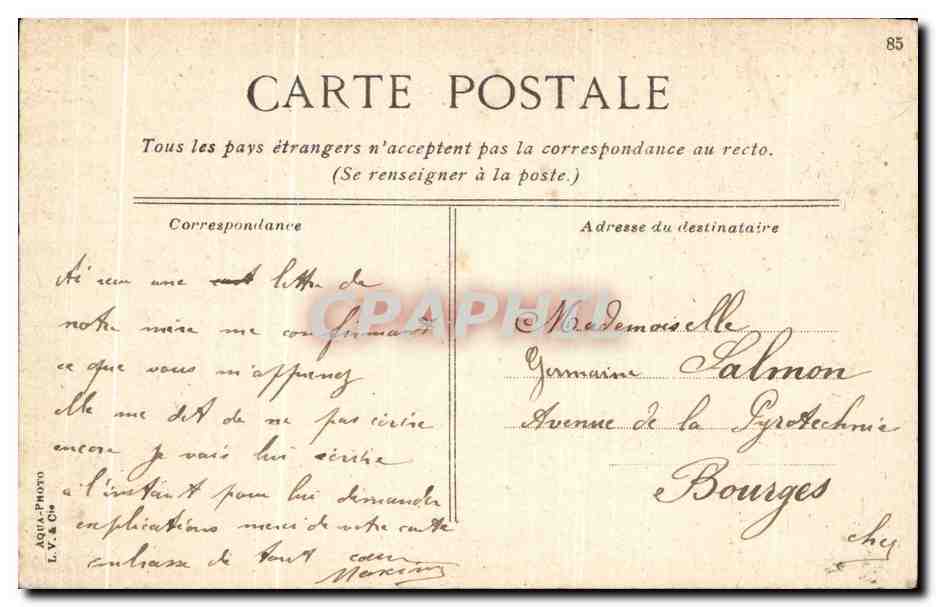 85
CARTE POSTALE
Tous les pays étrangers n'acceptent pas la correspondance au recto.
(Se renseigner à la poste.)
Correspondance
Ai reçu une lettre de
notre mère me confirmant
ce que vous m'apprenez
elle me dit de ne pas écrire
encore je vais lui écrire
a l'instant pour lui demander
explications merci de votre carte
embrasse de tout cœur
Adresse du destinataire
Mademoiselle
Germaine Salmon
Avenue de la Pyrotechnie
Bourges
Cher
AQUA-PHOTO
L. V. & Cie
CPAPHIL